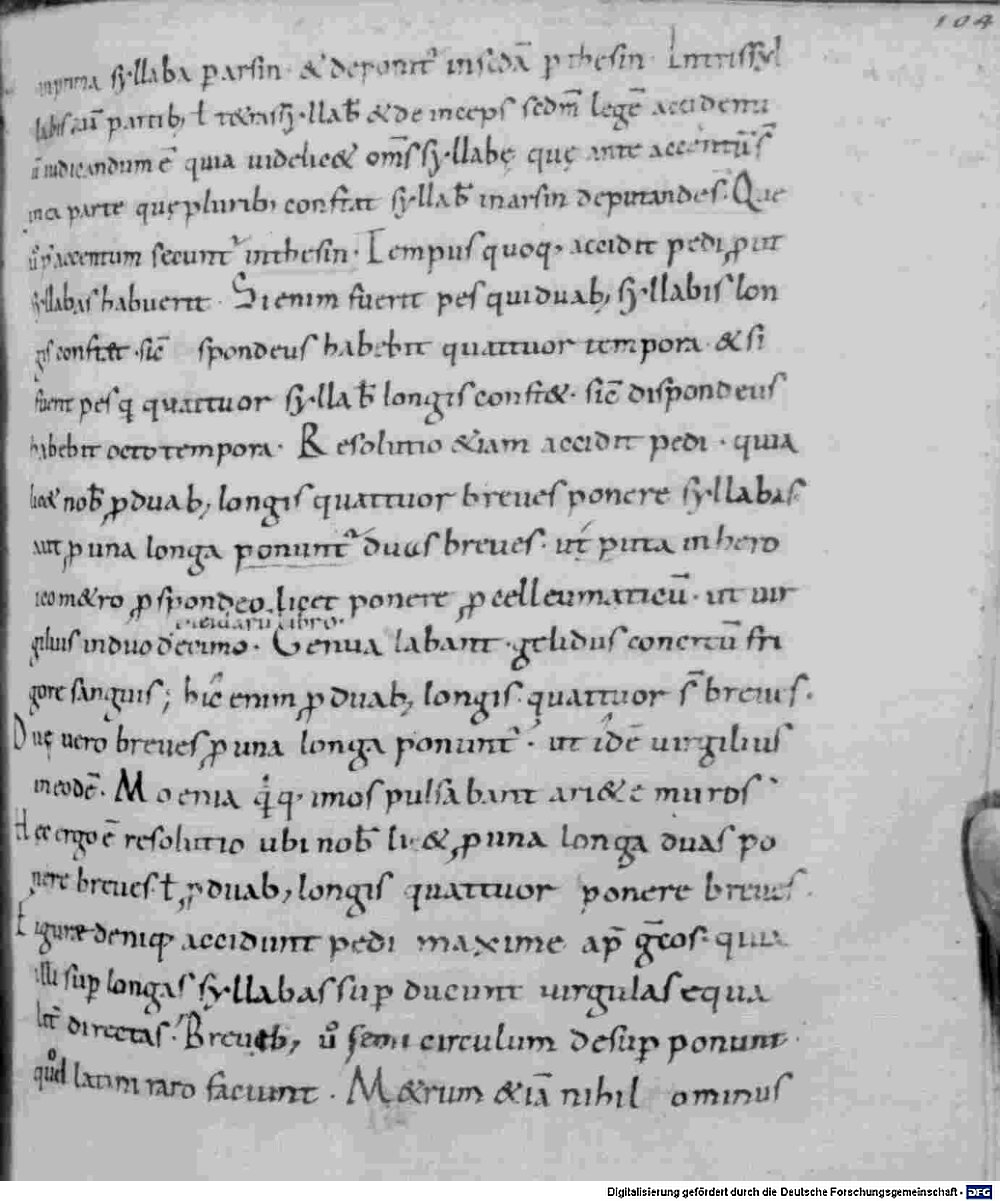 104
in prima syllaba p arsin · & deponit᷑ in scdā p thesin · In trissyl
labis aū partib; ł tetrassyllab̄ & deinceps scdm̄ legē accidentiū
iudicandum ē quia uidelic& om̄s syllabę quę ante accentū s̄
in ea parte quę plurib; constat syllab̄ in arsin deputandę s̄· Que
ū p accentum secunt᷑ in thesin · Tempus quoq, accidit pedi, ꝓut
syllabas habuerit · Si enim fuerit pes qui duab; syllabis lon
gis constet · sic̄ spondeus habebit quattuor tempora · & si
fuerit pes q quattuor syllab̄ longis const& · sic̄ dispondeus
habebit octo tempora · Resolutio &iam accidit pedi · quia
lic& nob̄ ꝓ duab; longis quattuor breues ponere syllabas
aut ꝓ una longa ponunt᷑ duas breues · ut puta in hero
ico m&ro ꝓ spondeo licet ponere ꝓcelleumaticū · ut uir
eneidarū libro·
gilius in duodecimo · Genua labant · gelidus concretū fri
gore sanguis; hic̄ enim ꝓ duab; longis quattuor s̄ breues ·
Duę uero breues ꝓ una longa ponunt᷑ · ut idē uirgilius
in eodē · Moenia q̇q· imos pulsabant ari&e muros
Hec ergo ē resolutio ubi nob̄ li& ꝓ una longa duas po
nere breues ł ꝓ duab; longis quattuor ponere breues ·
Figurae deniq; accidunt pedi maxime ap̄ gr̄cos · quia
illi sup longas syllabas sup ducunt uirgulas equa
lit̄ directas · Breuib; ů semi circulum desup ponunt ·
quod latini raro faciunt · M&rum &iā nihil ominus
Digitalisierung gefördert durch die Deutsche Forschungsgemeinschaft - DFG